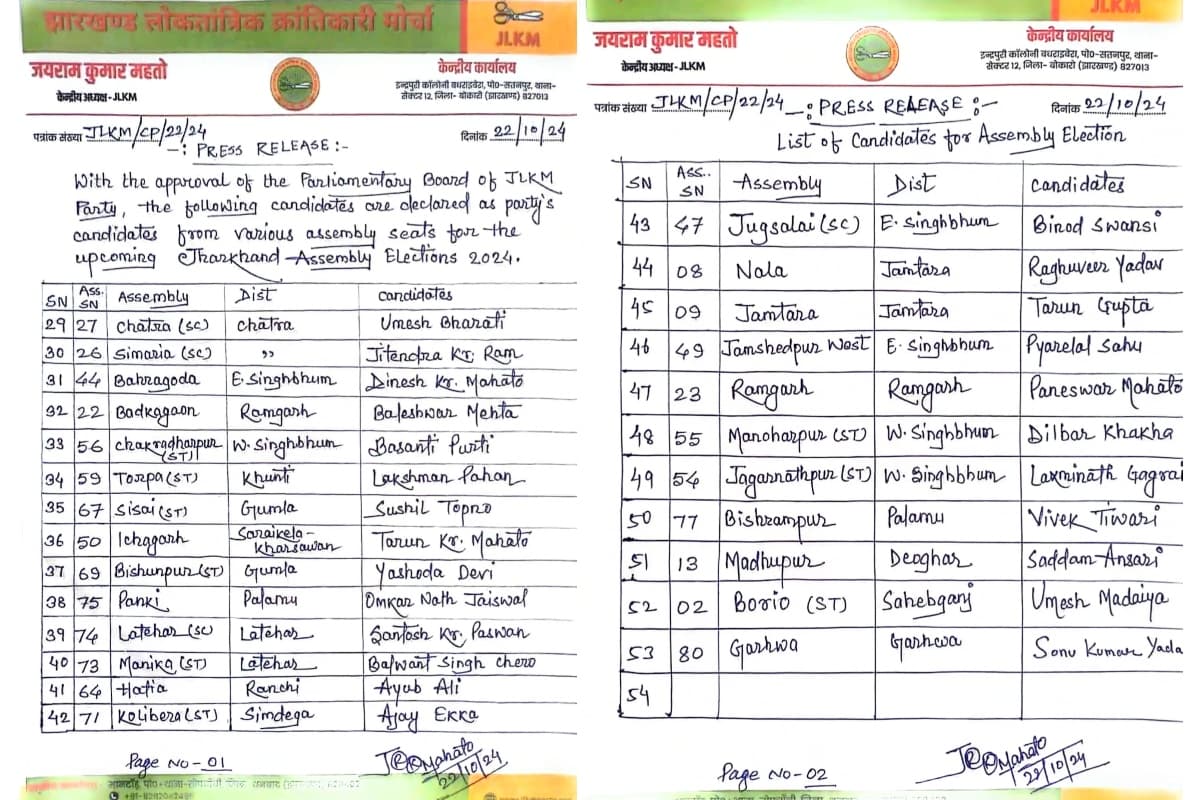 झारखण्ड लोकतान्त्रिक क्रांतिकारी मोर्चा
JLKM
जयराम कुमार महतो
केन्द्रीय अध्यक्ष-JLKM
केन्द्रीय कार्यालय
इन्द्रपुरी कॉलोनी बधराबेरा, पो०-सतनपुर, थाना-
सेक्टर 12, जिला- बोकारो (झारखण्ड) 827013
पत्रांक संख्या JLKM/CP/22/24
दिनांक 22/10/24
-: PRESS RELEASE :-
With the approval of the Parliamentary Board of JLKM
Party, the following candidates are declared as party's
candidates from various assembly seats for the
upcoming Jharkhand Assembly Elections 2024.
SN Ass. SN Assembly Dist Candidates
29 27 Chatra (SC) Chatra Umesh Bharati
30 26 Simaria (SC) " Jitendra Kr. Ram
31 44 Bahragoda E. Singhbhum Dinesh Kr. Mahato
32 22 Badkagaon Ramgarh Baleshwar Mehta
33 56 Chakradharpur (ST) W. Singhbhum Basanti Purti
34 59 Torpa (ST) Khunti Lakshman Pahan
35 67 Sisai (ST) Gumla Sushil Topno
36 50 Ichagarh Saraikela-Kharsawan Tarun Kr. Mahato
37 69 Bishunpur (ST) Gumla Yashoda Devi
38 75 Panki Palamu Omkar Nath Jaiswal
39 74 Latehar (SC) Latehar Santosh Kr. Paswan
40 73 Manika (ST) Latehar Balwant Singh Chero
41 64 Hatia Ranchi Ayub Ali
42 71 Kolibera (ST) Simdega Ajay Ekka
Page No-01
Mahato
22/10/24
JLKM
जयराम कुमार महतो
केन्द्रीय अध्यक्ष-JLKM
केन्द्रीय कार्यालय
इन्द्रपुरी कॉलोनी बधराबेरा, पो०-सतनपुर, थाना-
सेक्टर 12, जिला- बोकारो (झारखण्ड) 827013
पत्रांक संख्या JLKM/CP/22/24 -: PRESS RELEASE :- दिनांक 22/10/24
List of Candidates for Assembly Election
SN Ass.. SN Assembly Dist Candidates
43 47 Jugsalai (SC) E. Singhbhum Binod Swansi
44 08 Nala Jamtara Raghuveer Yadav
45 09 Jamtara Jamtara Tarun Gupta
46 49 Jamshedpur West E. Singhbhum Pyarelal Sahu
47 23 Ramgarh Ramgarh Paneswar Mahato
48 55 Manoharpur (ST) W. Singhbhum Dilbar Khakha
49 54 Jagarnathpur (ST) W. Singhbhum Laxminath Gagrai
50 77 Bishrampur Palamu Vivek Tiwari
51 13 Madhupur Deoghar Saddam Ansari
52 02 Borio (ST) Sahebganj Umesh Madaiya
53 80 Garhwa Garhwa Sonu Kumar Yada
54
Page No-02
Mahato
22/10/24